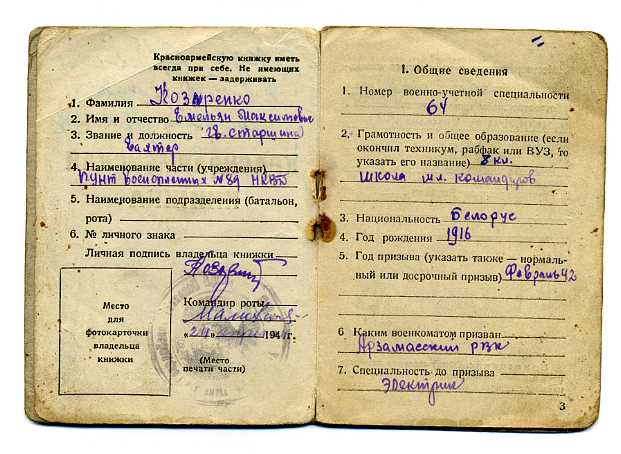 Красноармейскую книжку иметь
всегда при себе. Не имеющих
книжек — задерживать
1. Фамилия Козыренко
2. Имя и отчество Емельян Максимович
3. Звание и должность гв. старшина
вахтер
4. Наименование части (учреждения)
Пункт Военопленных №89 НКВД
5. Наименование подразделения (батальон,
рота)
6. № личного знака
Личная подпись владельца книжки
Командир роты
194 г.
(Место
печати части)
Место
для
фотокарточки
владельца
книжки
I. Общие сведения
1. Номер военно-учетной специальности
64
2. Грамотность и общее образование (если
окончил техникум, рабфак или ВУЗ, то
указать его название) 8 кл.
школа мл. командиров
3. Национальность Белорус
4. Год рождения 1916
5. Год призыва (указать также — нормаль-
ный или досрочный призыв) Февраль 42
6 Каким военкоматом призван
Арзамасский РВК
7. Специальность до призыва
Электрик
3